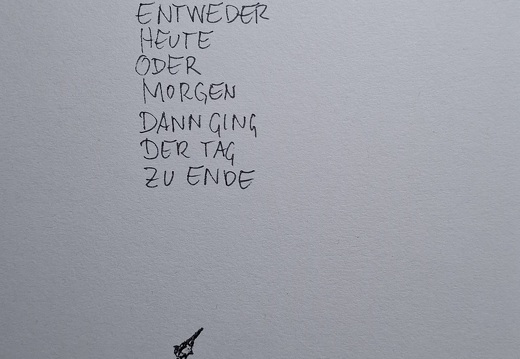 ENTWEDER
HEUTE
ODER
MORGEN
DANN GING
DER TAG
ZU ENDE